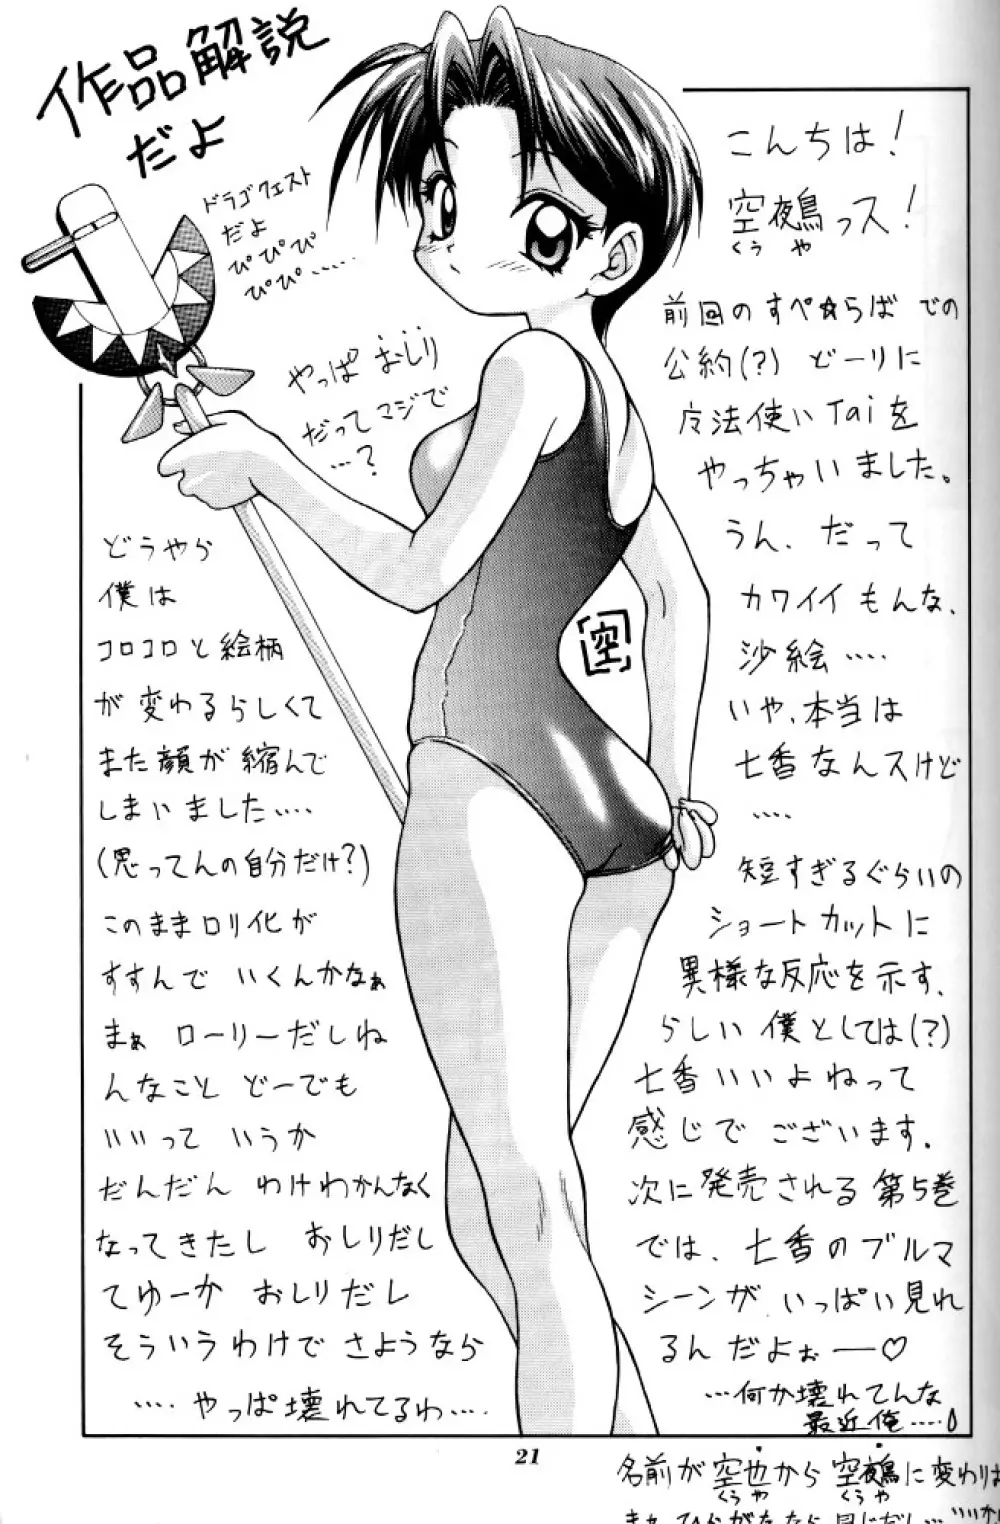 作品解説
だよ
ドラゴクエスト
だよ
ぴぴぴ
ぴぴ……
やっぱ おしり
だって マジで
…?
こんちは!
空鵺っス!
くう や
前回のすぺ☆らば での
公約(?) どーりに
法使い Taiを
やっちゃいました。
うん、だって
カワイイもんな、
沙絵….
いや、本当は
七香なんスけど
….
短すぎるぐらいの
ショートカットに
異様な反応を示す、
らしい 僕としては(?)
七香いいよねって
感じで ございます.
次に発売される 第5巻
では、七香のブルマ
シーンが いっぱい見れ
るんだよぉー♡
…何か壊れてんな
最近俺….
どうやら
僕は
コロコロと絵柄
が変わるらしくて
また顔が縮んで
しまいました….
(思ってんの自分だけ?)
このままロリ化が
すすんで いくんかなぁ
まぁ ローリーだしね
んなこと どーでも
いいって いうか
だんだん わけわかんなく
なってきたし おしりだし
てゆーか おしりだし
そういうわけで さようなら
….やっぱ壊れてるわ….
空
21
名前が 空也から 空鵺に変わりは
くう や くう や